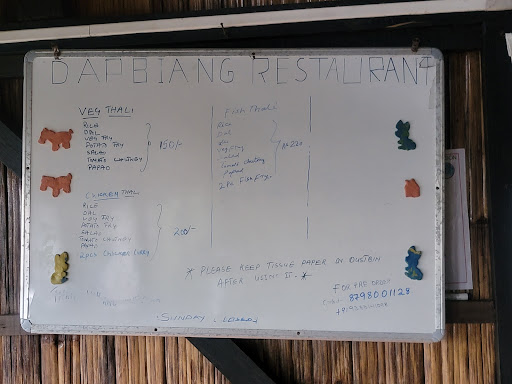 DAPBIANG RESTAURANT
VEG THALI
RICE
DAL
VEG FRY
POTATO FRY
SALAD
TOMATO CHUTNEY
PAPAD
150/-
CHICKEN THALI
RICE
DAL
VEG FRY
POTATO FRY
SALAD
TOMATO CHUTNEY
PAPAD
2pcs CHICKEN CURRY
200/-
Fish Thali
Rice
Dal
Veg Fry
Salad
Tomato Chutney
Papad
2 Pc Fish Fry
Rs 220
* PLEASE KEEP TISSUE PAPER IN DUSTBIN
AFTER USING IT. *
FOR PRE ORDER
8798001128
SUNDAY